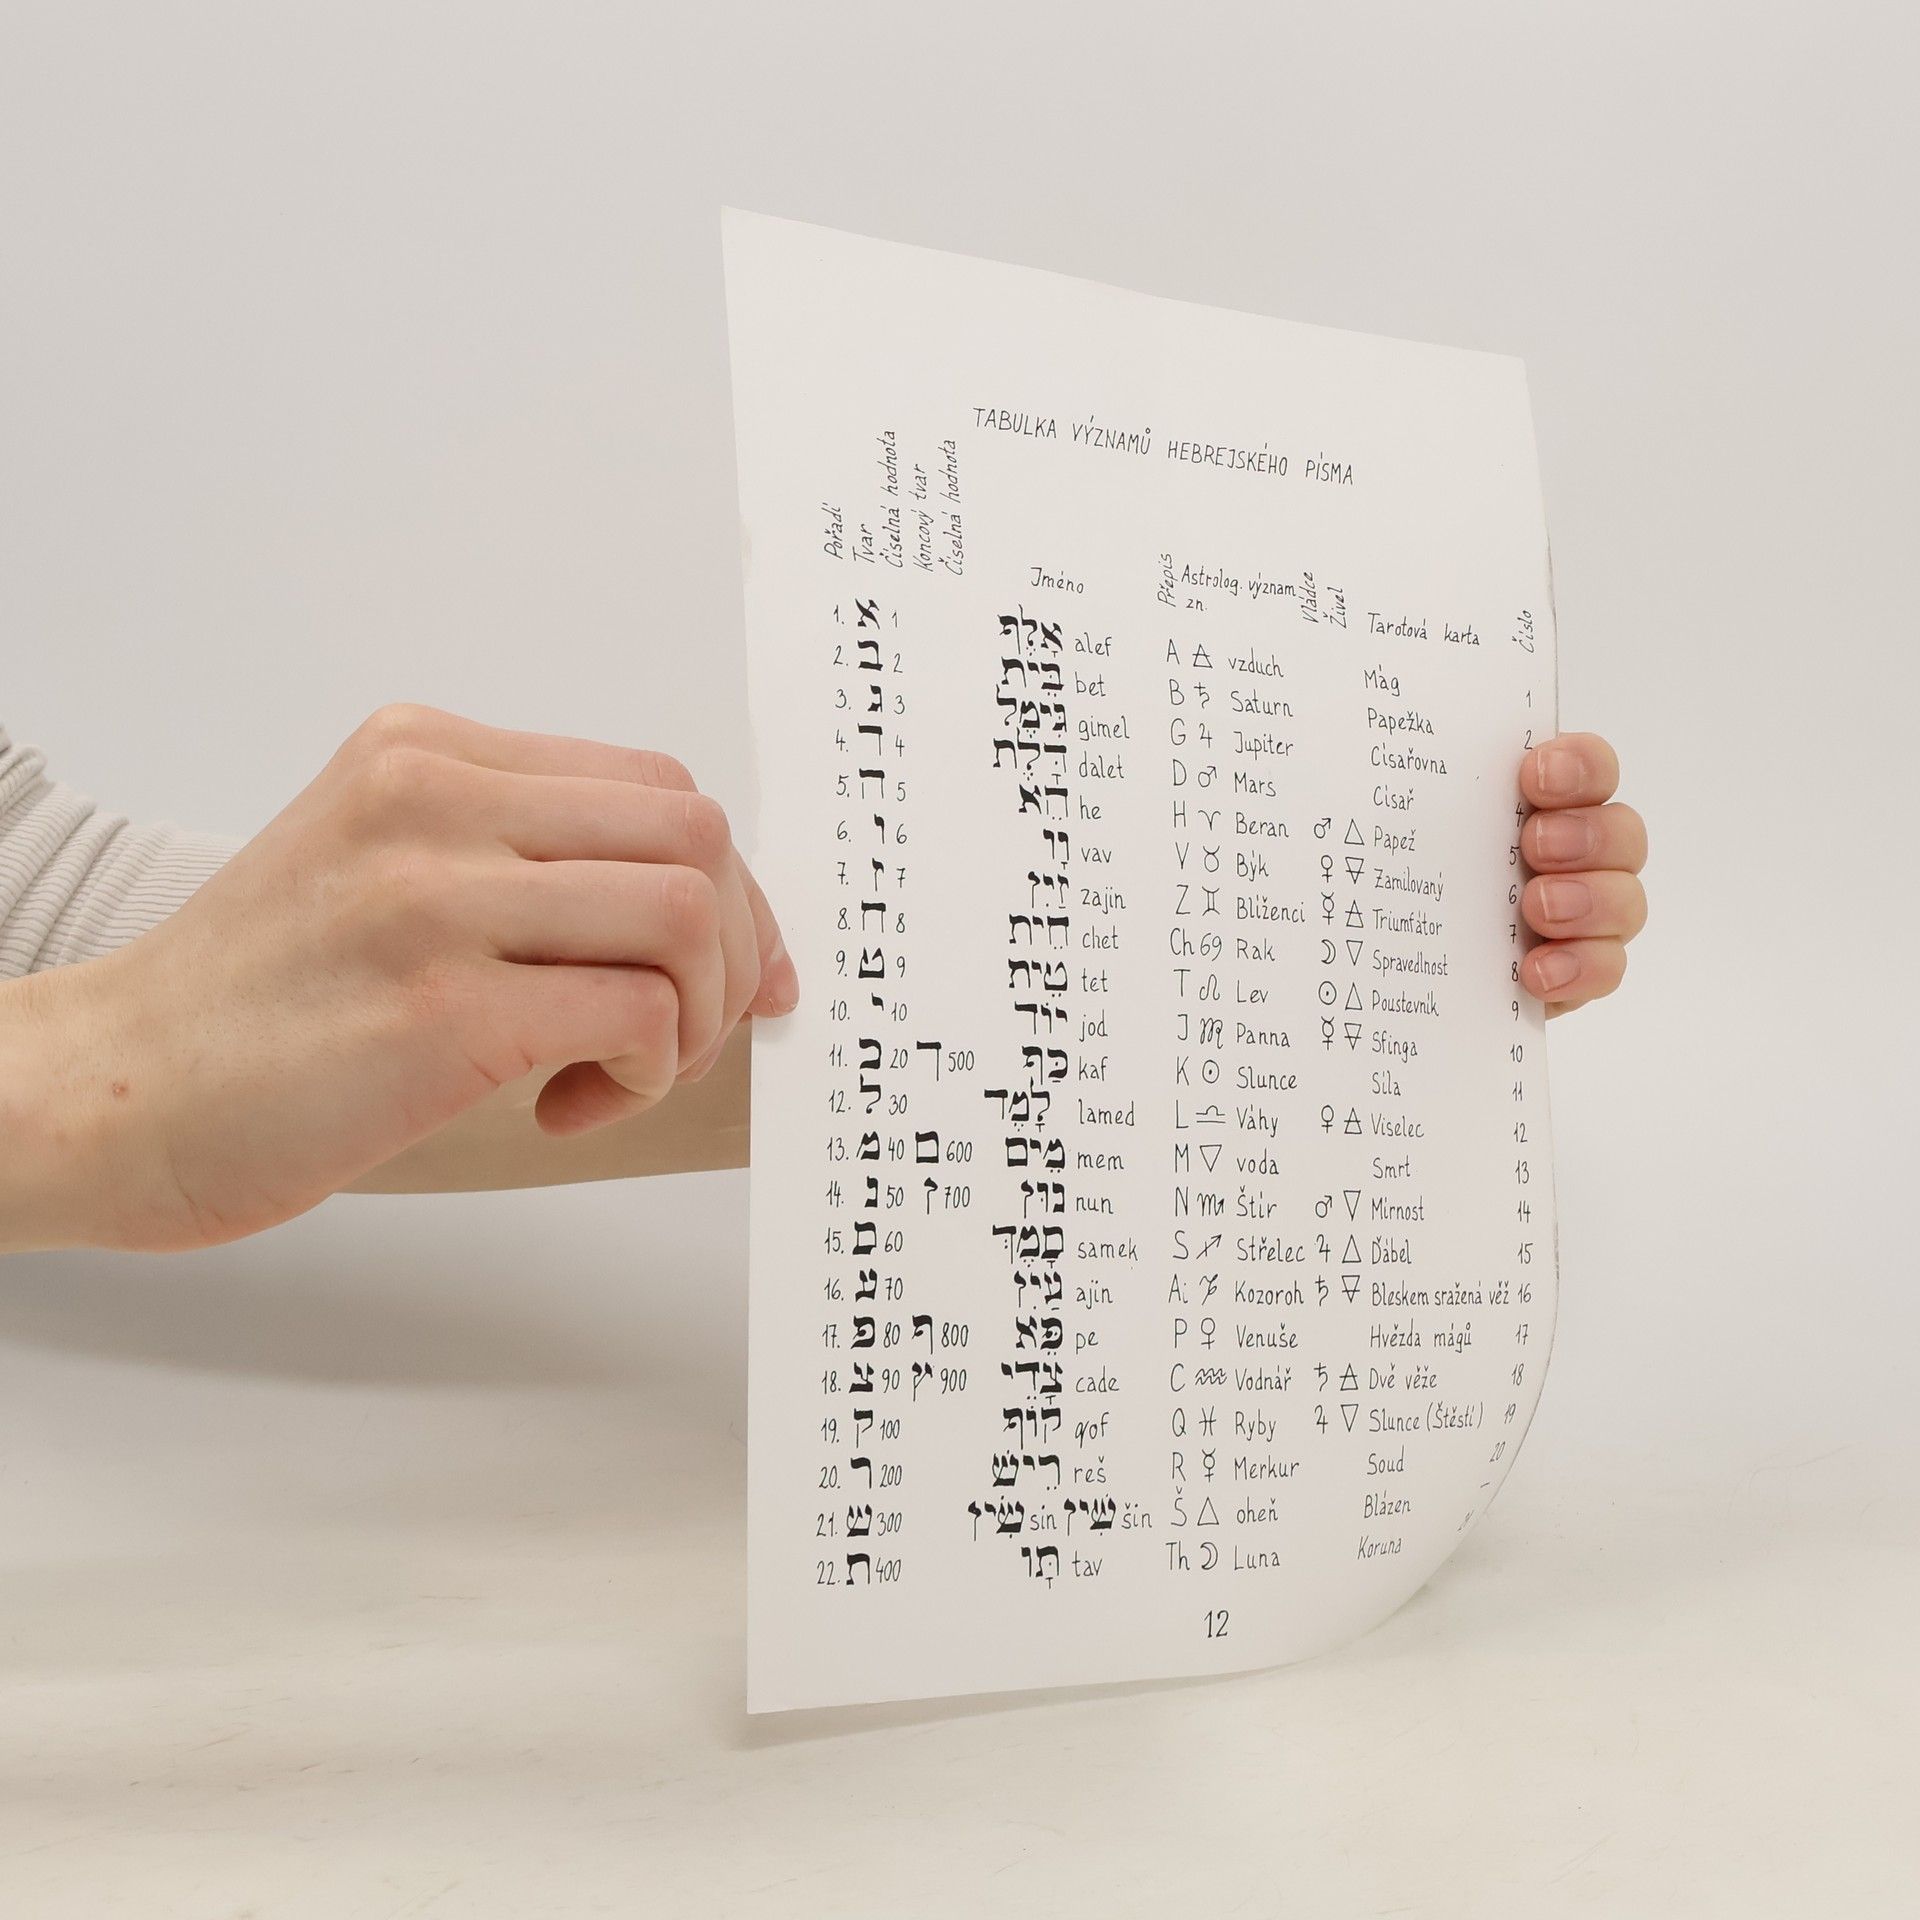 TABULKA VÝZNAMŮ HEBREJSKÉHO PÍSMA
Pořadí Tvar Číselná hodnota Koncový tvar Číselná hodnota Jméno Přepis Astrolog. význam zn. Vládce Živel Tarotová karta Číslo
1. א 1 אָלֶף alef A 🜁 vzduch Mág 1
2. ב 2 בֵּית bet B ♄ Saturn Papežka 2
3. ג 3 גִּימֶל gimel G ♃ Jupiter Císařovna
4. ד 4 דָּלֶת dalet D ♂ Mars Císař 4
5. ה 5 הֵא he H ♈ Beran ♂ △ Papež 5
6. ו 6 וָו vav V ♉ Býk ♀ 🜃 Zamilovaný 6
7. ז 7 זַיִן zajin Z ♊ Blíženci ☿ 🜁 Triumfátor 7
8. ח 8 חֵית chet Ch ♋ Rak ☽ ▽ Spravedlnost 8
9. ט 9 טֵית tet T ♌ Lev ☉ △ Poustevník 9
10. י 10 יוֹד jod J ♍ Panna ☿ 🜃 Sfinga 10
11. כ 20 ך 500 כַּף kaf K ☉ Slunce Síla 11
12. ל 30 לָמֶד lamed L ♎ Váhy ♀ 🜁 Viselec 12
13. מ 40 ם 600 מֵים mem M ▽ voda Smrt 13
14. נ 50 ן 700 נוּן nun N ♏ Štír ♂ ▽ Mírnost 14
15. ס 60 סָמֶךְ samek S ♐ Střelec ♃ △ Ďábel 15
16. ע 70 עַיִן ajin Ai ♑ Kozoroh ♄ 🜃 Bleskem sražená věž 16
17. פ 80 ף 800 פֵּא pe P ♀ Venuše Hvězda mágů 17
18. צ 90 ץ 900 צָדֵי cade C ♒ Vodnář ♄ 🜁 Dvě věže 18
19. ק 100 קוֹף qof Q ♓ Ryby ♃ ▽ Slunce (Štěstí) 19
20. ר 200 רֵישׁ reš R ☿ Merkur Soud 20
21. ש 300 שִׂין sin שִׁין šin Š △ oheň Blázen –
22. ת 400 תָּו tav Th ☽ Luna Koruna
12